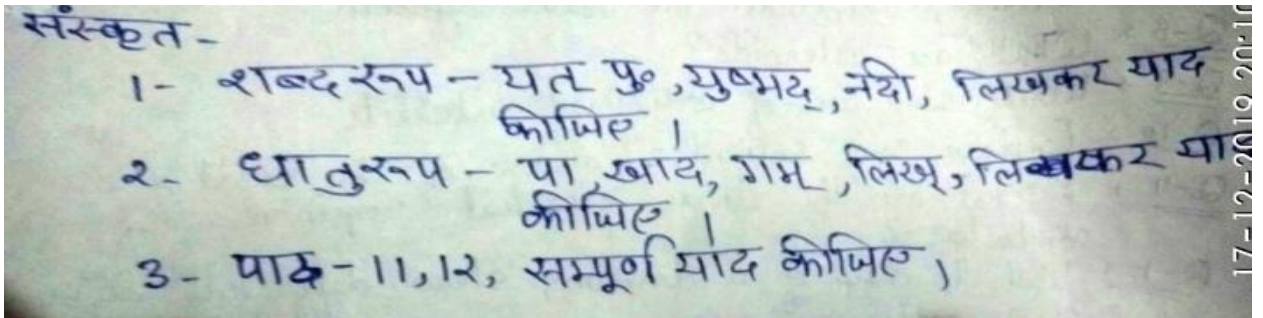 संस्कृत-
1- शब्द रूप - यत् पु०, युष्मद्, नदी, लिखकर याद
कीजिए।
२- धातुरूप - पा, खाद्, गम्, लिख्, लिखकर या
कीजिए।
3- पाठ-11,12, सम्पूर्ण याद कीजिए।
17-12-2019 20:10